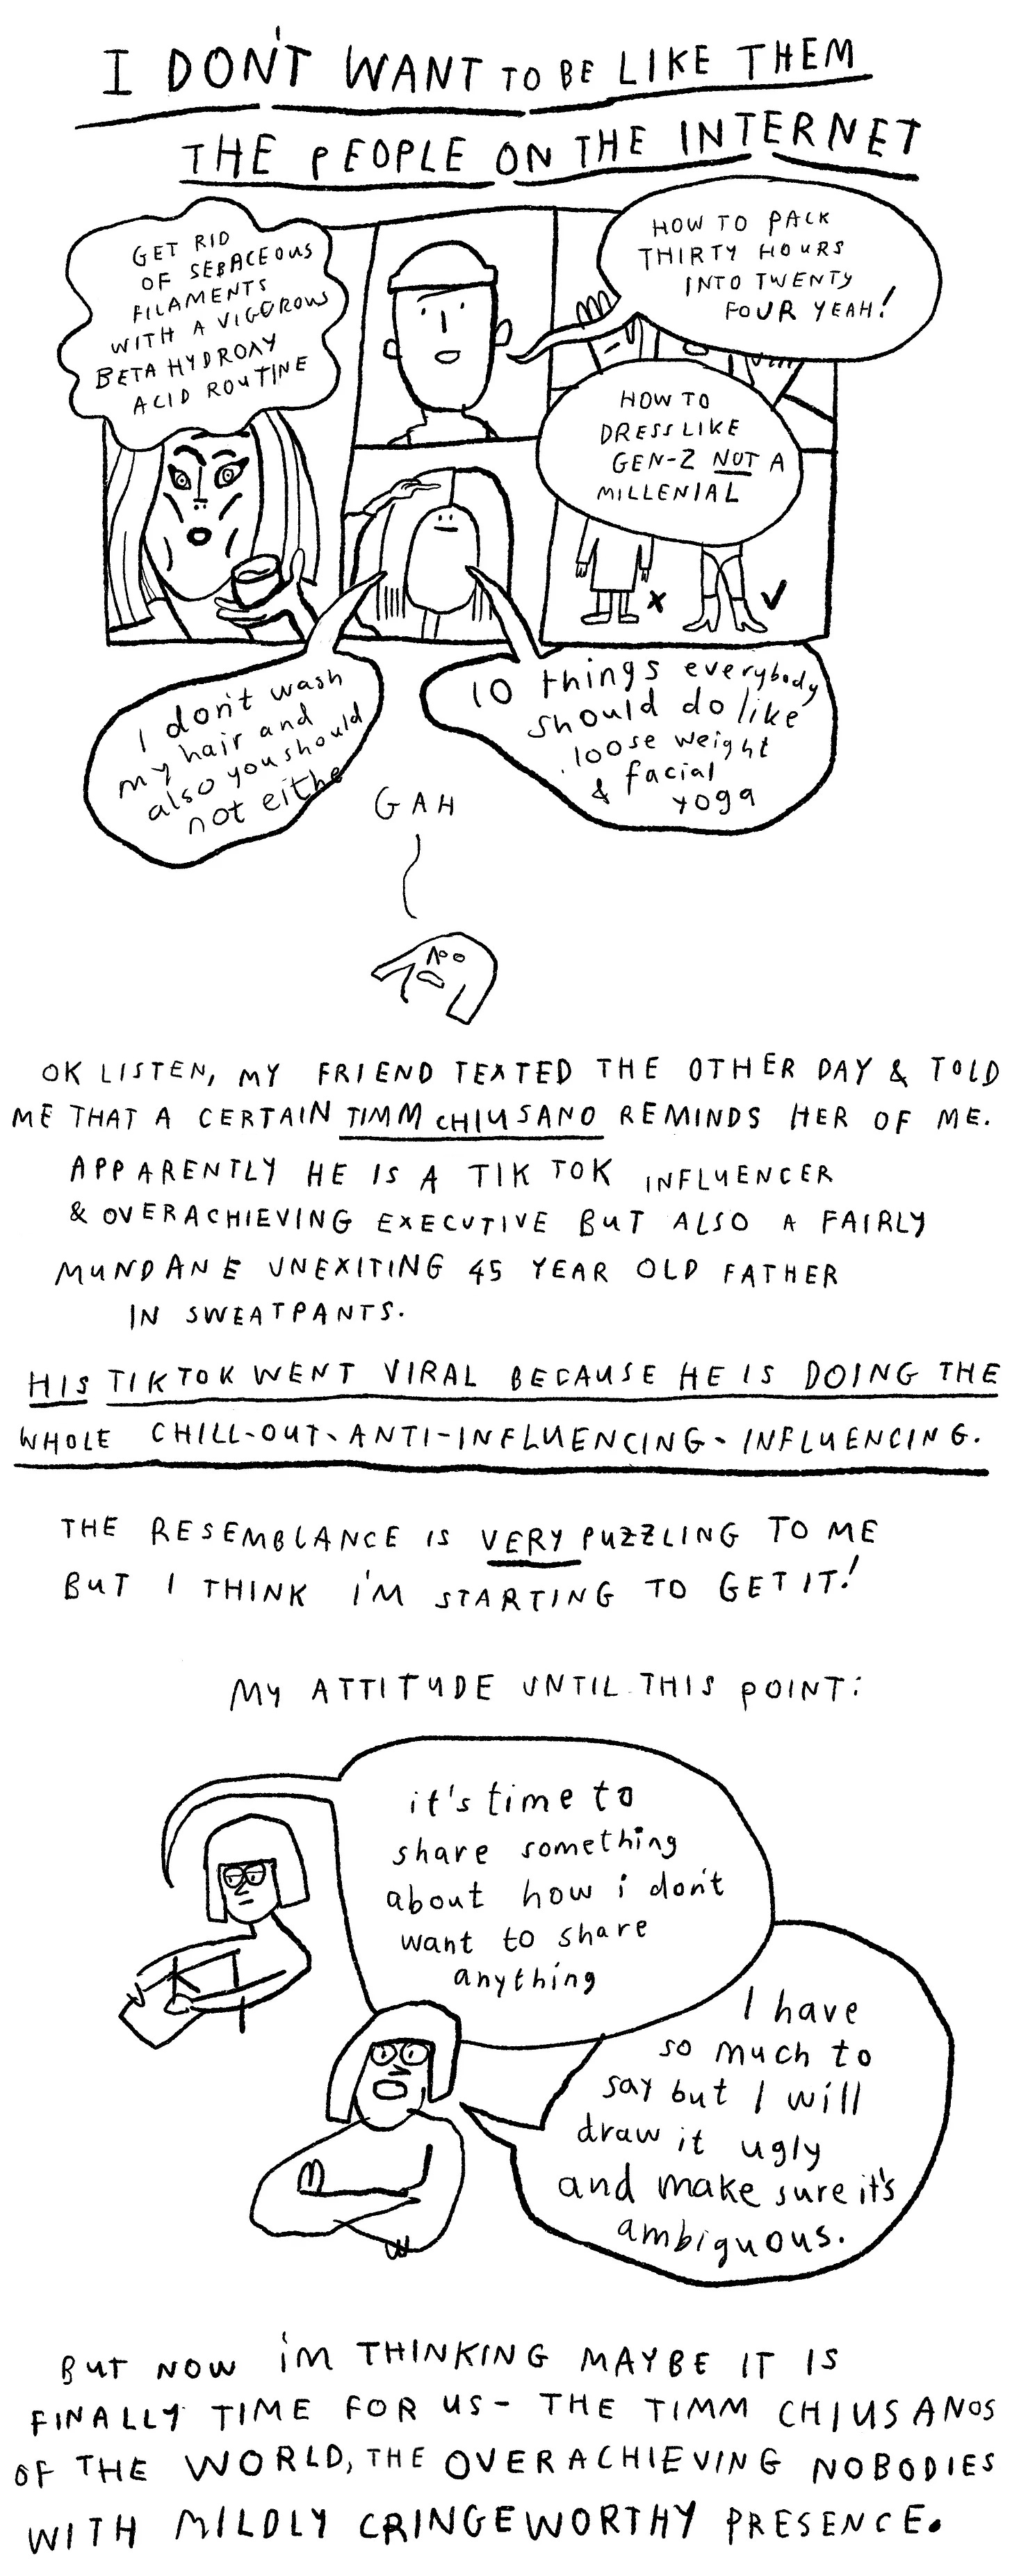 I DON'T WANT TO BE LIKE THEM
THE PEOPLE ON THE INTERNET
GET RID
OF SEBACEOUS
FILAMENTS
WITH A VIGOROUS
BETA HYDROXY
ACID ROUTINE
HOW TO PACK
THIRTY HOURS
INTO TWENTY
FOUR YEAH!
HOW TO
DRESS LIKE
GEN-Z NOT A
MILLENIAL
x ✓
I don't wash
my hair and
also you should
not eithe
10 things everybody
should do like
loose weight
& facial
yoga
GAH
OK LISTEN, MY FRIEND TEXTED THE OTHER DAY & TOLD
ME THAT A CERTAIN TIMM CHIUSANO REMINDS HER OF ME.
APPARENTLY HE IS A TIK TOK INFLUENCER
& OVERACHIEVING EXECUTIVE BUT ALSO A FAIRLY
MUNDANE UNEXITING 45 YEAR OLD FATHER
IN SWEATPANTS.
HIS TIKTOK WENT VIRAL BECAUSE HE IS DOING THE
WHOLE CHILL-OUT-ANTI-INFLUENCING-INFLUENCING.
THE RESEMBLANCE IS VERY PUZZLING TO ME
BUT I THINK I'M STARTING TO GET IT!
MY ATTITUDE UNTIL THIS POINT:
it's time to
share something
about how i don't
want to share
anything
I have
so much to
say but I will
draw it ugly
and make sure it's
ambiguous.
BUT NOW I'M THINKING MAYBE IT IS
FINALLY TIME FOR US - THE TIMM CHIUSANOS
OF THE WORLD, THE OVERACHIEVING NOBODIES
WITH MILDLY CRINGEWORTHY PRESENCE.